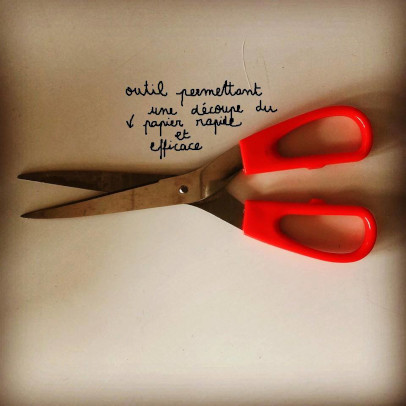 outil permettant
une découpe du
↓ papier rapide
et
efficace